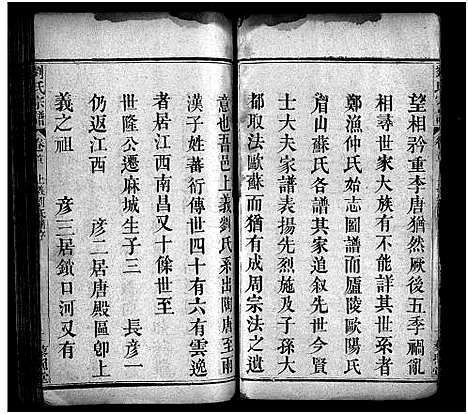 望相矜重李唐猶然厥後五季禍亂
相尋世家大族有不能詳其世者
鄭漁仲氏始志圖譜而廬陵歐陽氏
眉山蘇氏各譜其家追叙先世今賢
士大夫家譜表揚先烈示子孫大
都取法歐蘇而猶有成周宗法之遺
意也吾邑上義劉氏系出陶唐至兩
漢子姓蕃衍傳世四十有六有雲逸
者居江西南昌又十餘世至
世隆公遷麻城生子三 長彦一
仍返江西 彦二居唐殿區卽上
義之祖 彦三居鎖口河又有
劉氏宗譜 卷首